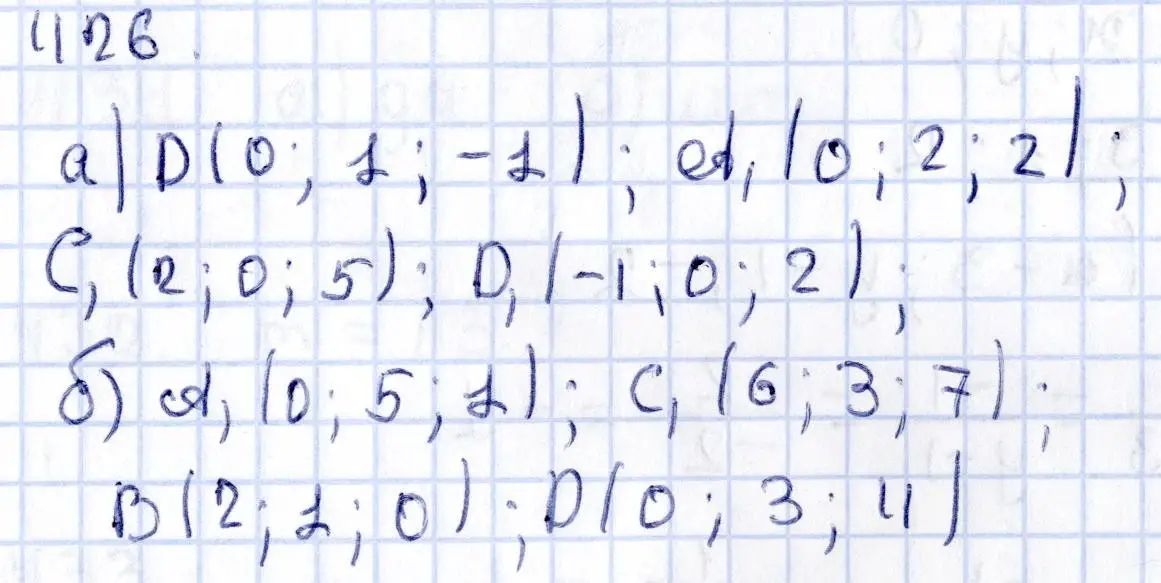 426.
а) D(0; 1; -1); A₁(0; 2; 2);
C₁(2; 0; 5); D₁(-1; 0; 2);
б) A₁(0; 5; 1); C₁(6; 3; 7);
B(2; 1; 0); D(0; 3; 4)